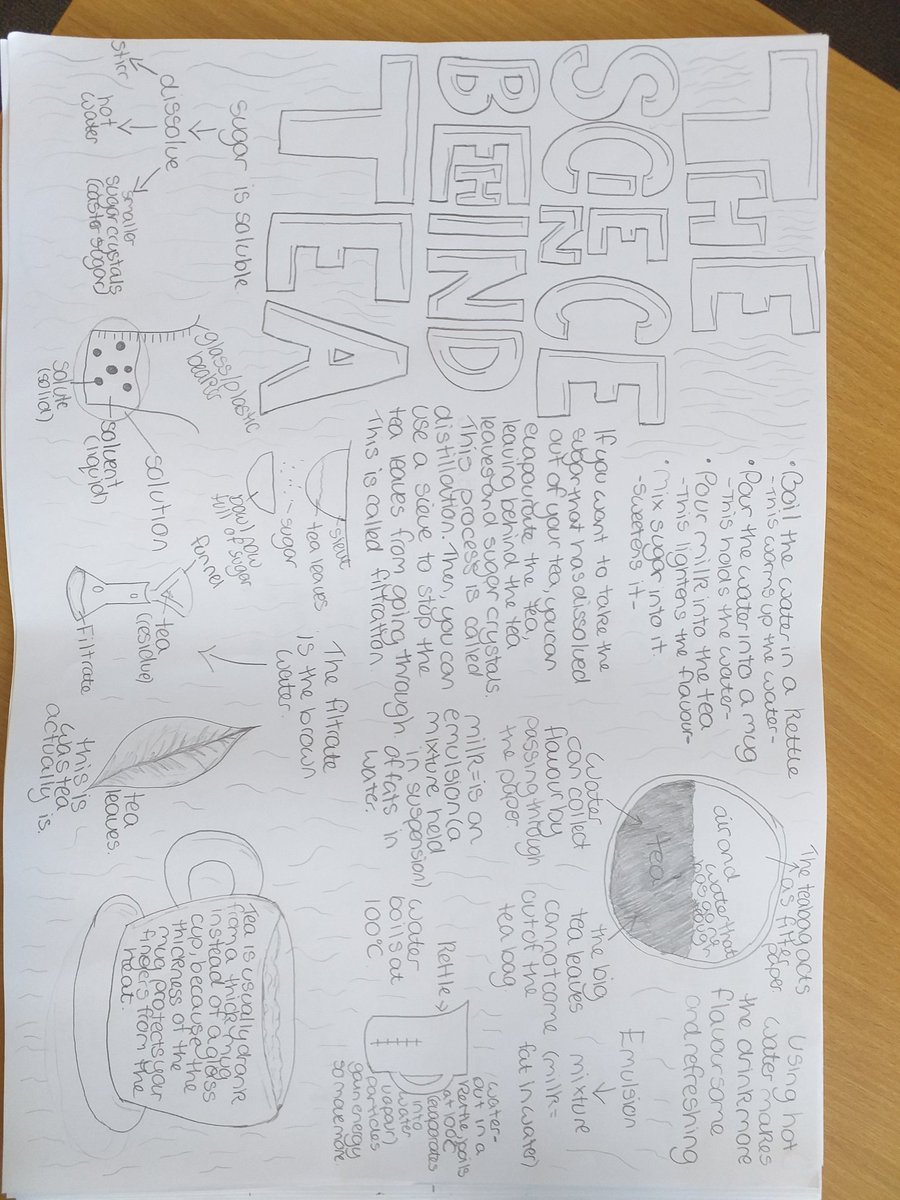 THE
SCIENCE
BEHIND
TEA
• Boil the water in a kettle
- This warms up the water -
• Pour the water into a mug
- This holds the water -
• Pour milk into the tea
- This lightens the flavour -
• Mix sugar into it.
- sweetens it -
If you want to take the
sugar that has dissolved
out of your tea, you can
evapourate the tea,
leaving behind the tea
leaves and sugar crystals.
This process is called
distillation. Then, you can
use a sieve to stop the
tea leaves from going through.
This is called filtration.
The teabag acts
as filter
paper
air and
water that
has got
tea
Using hot
water makes
the drink more
flavoursome
and refreshing
Water
can collect
flavour by
passing through
the paper
the big
tea leaves
cannot come
out of the
tea bag
Emulsion
mixture
(milk =
fat in water)
milk = is an
emulsion (a
mixture held
in suspension)
of fats in
water.
water
boils at
100°C
Kettle
(water -
put in a
kettle boils
at 100°C
(evaporates
into
water
vapour)
particles
gain energy
so move more
sugar is soluble
dissolve
stirr
hot
water
smaller
sugar crystals
(caster sugar)
glass/plastic
beaker
solution
solvent
(liquid)
solute
(solid)
sieve
tea leaves
sugar
bowl now
full of sugar
funnel
tea
(residue)
Filtrate
The filtrate
is the brown
water.
tea
leaves.
this is
what tea
actually is.
Tea is usually drank
from a thick mug
instead of a glass
cup, because the
thickness of the
mug protects your
fingers from the
heat.